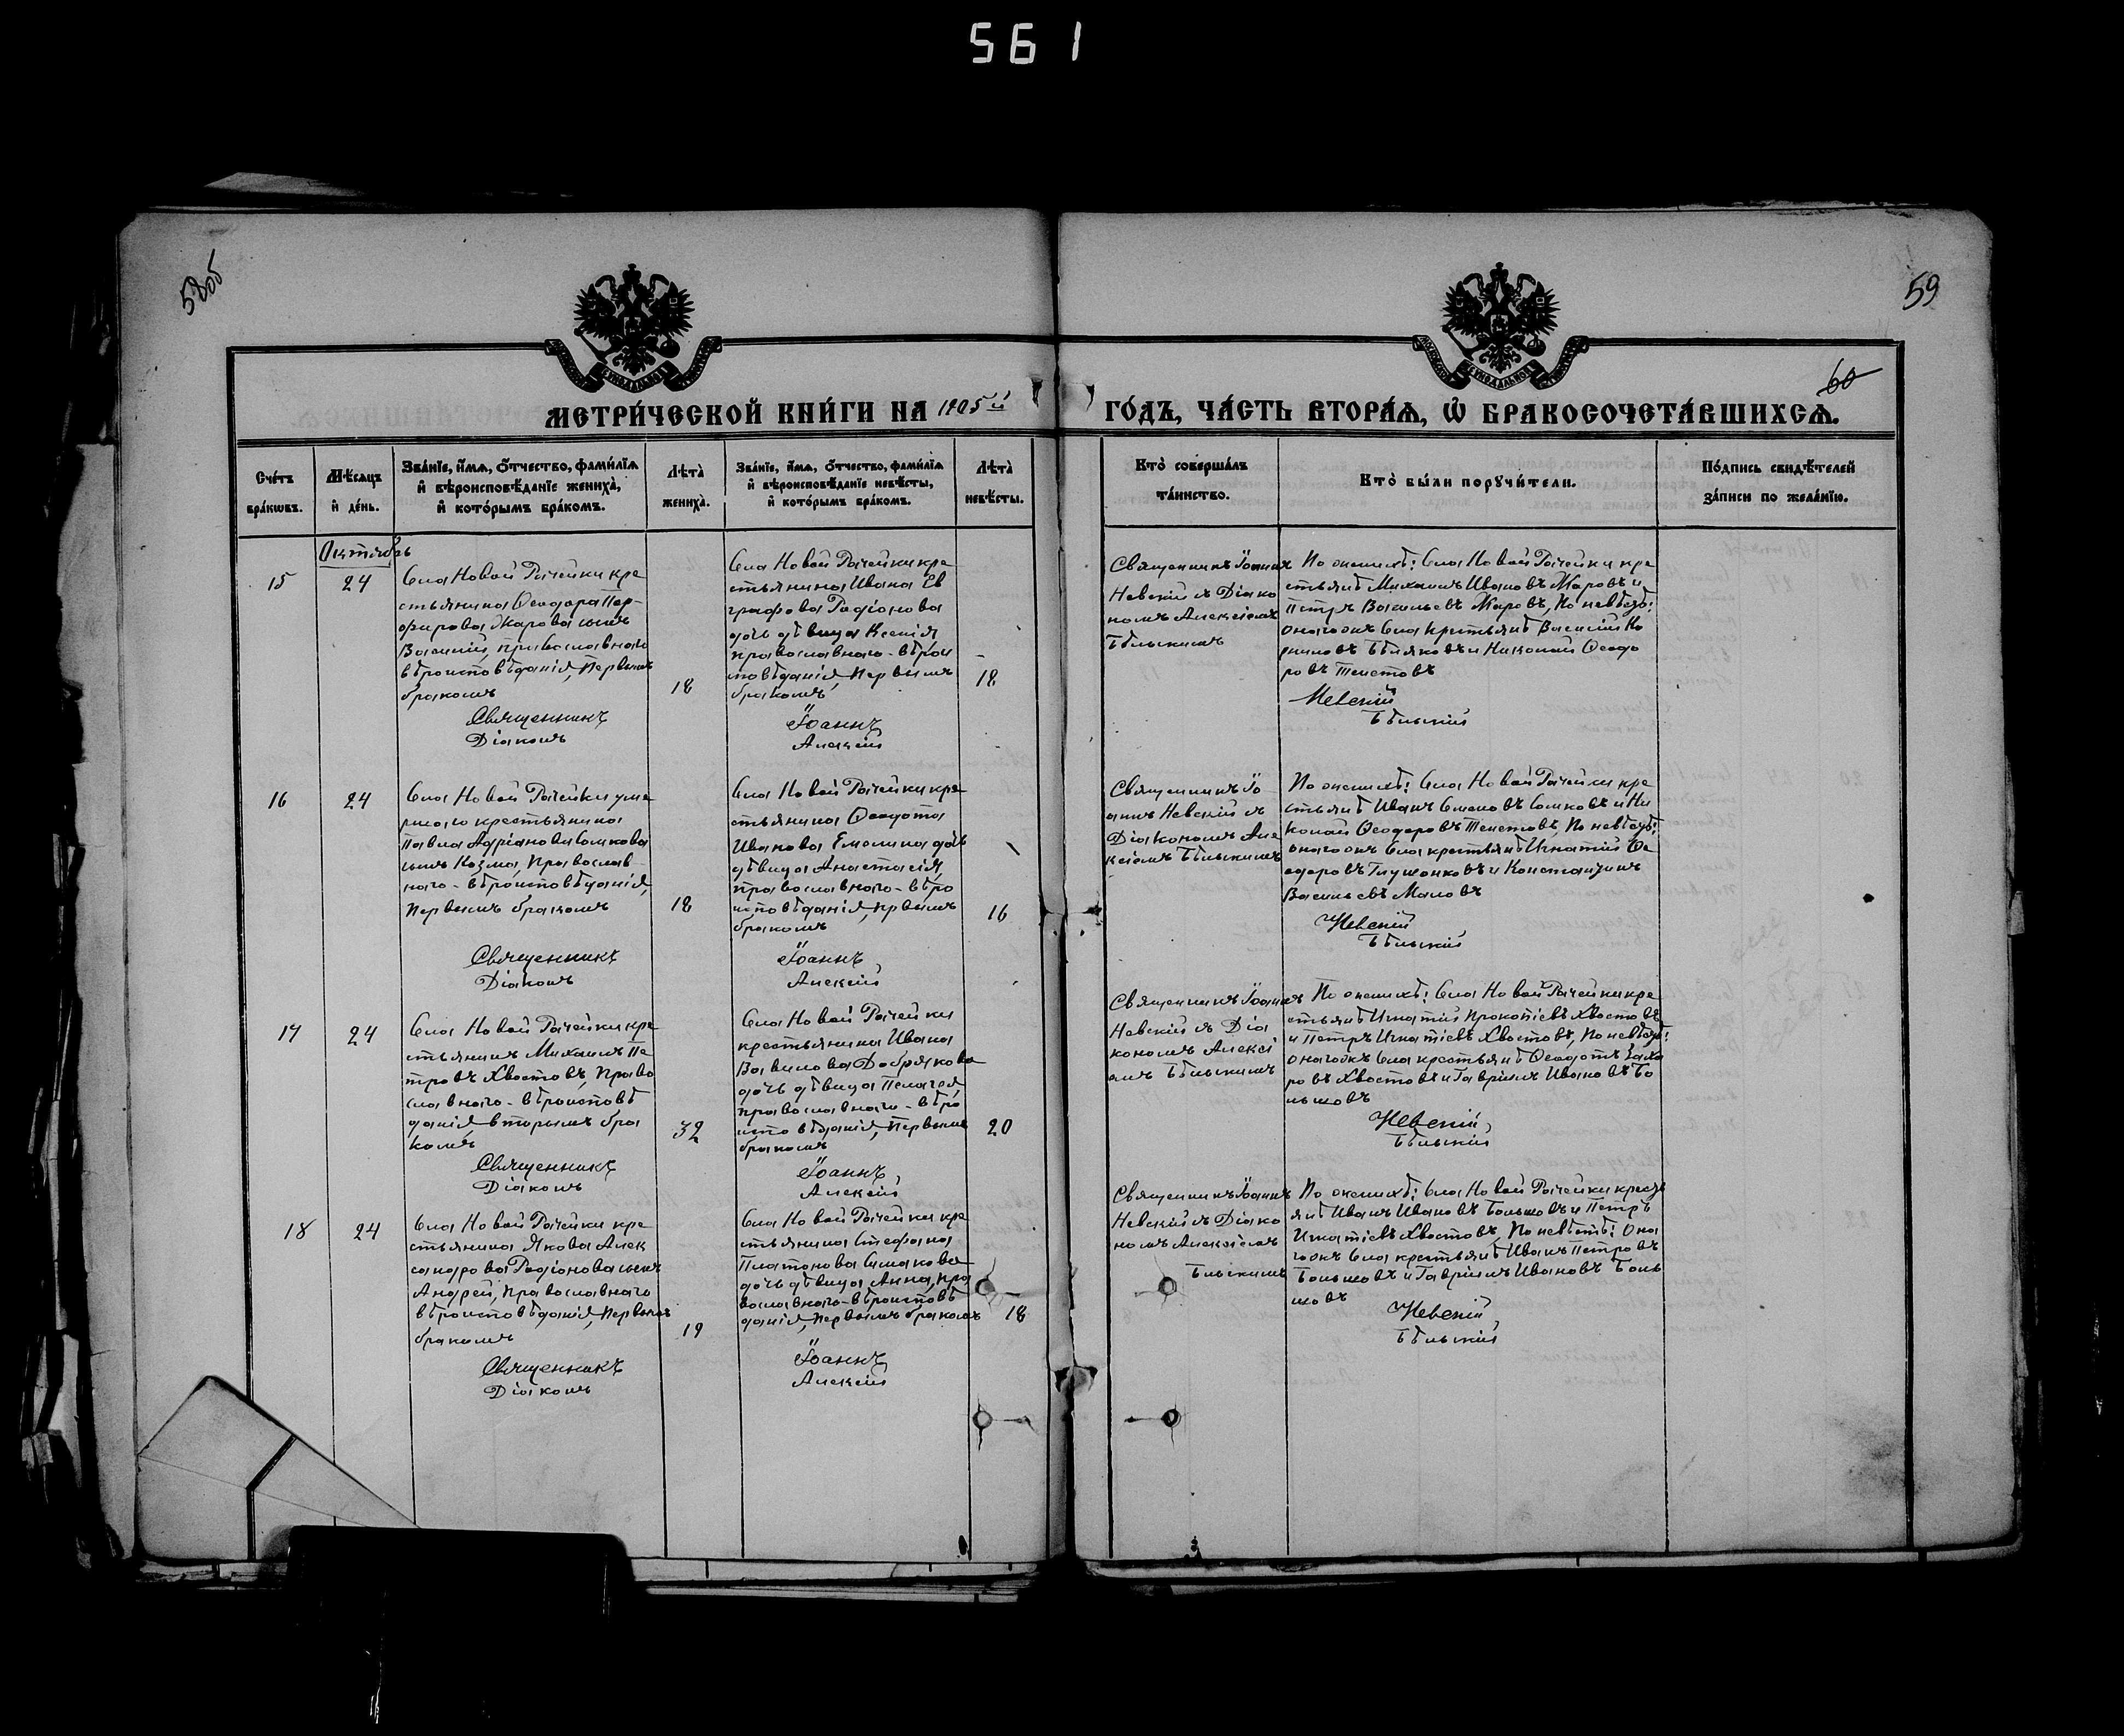 561
58об
59
60
МЕТРИ́ЧЕСКОЙ КНИ́ГИ НА 1905й
ГО́ДЪ, ЧА́СТЬ ВТОРА́Я, Ѡ БРАКОСОЧЕТА́ВШИХСЯ.
Сче́тъ бра́ковъ.
Мѣ́сяцъ и де́нь.
Зва́нїе, и́мя, о́тчество, фами́лїя и вѣроисповѣ́данїе жениха̀, и кото́рымъ бра́комъ.
Лѣта̀ жениха̀.
Зва́нїе, и́мя, о́тчество, фами́лїя и вѣроисповѣ́данїе невѣ́сты, и кото́рымъ бра́комъ.
Лѣта̀ невѣ́сты.
Кто̀ соверша́лъ та́инство.
Кто̀ бы́ли поручи́тели.
По́дпись свидѣ́телей за́писи по жела́нїю.
Октябрь
15
24
Села Новой Рачейки кре
стьянина Ѳеодора Пор-
фирова Жарова сынъ
Василий, православнаго
вѣроисповѣданія, первымъ
бракомъ
18
Села Новой Рачейки кре
стьянина Ивана Ев
графова Родіонова
дочь дѣвица Ксенія
православнаго-вѣрои
сповѣданія, первымъ
бракомъ
18
Священникъ Іоаннъ
Невскій съ Діако
номъ Алексіемъ
Бѣльскимъ
По женихѣ: Села Новой Рачейки кре
стьянѣ Михаилъ Ивановъ Жаровъ и
Петръ Васильевъ Жаровъ, По невѣстѣ:
онагожъ села крестьянѣ Василій Ко
Бѣляковъ и Николай Ѳеодо
ровъ Теистовъ
Священникъ Іоаннъ Невскій
Діаконъ Алексій Бѣльскій
16
24
Села Новой Рачейки уме
ршаго крестьянина
Павла Адріанова Сомкова
сынъ Козма, православ-
наго-вѣроисповѣданія,
первымъ бракомъ
18
Села Новой Рачейки кре
стьянина Ѳеодота
Иванова Емелина дочь
дѣвица Анастасія,
православнаго-вѣро
исповѣданія, первымъ
бракомъ
16
Священникъ Іо
аннъ Невскій съ
Діакономъ Але
ксіемъ Бѣльскимъ
По женихѣ: Села Новой Рачейки кре
стьянѣ Иванъ Семеновъ Сомковъ и Ни
колай Ѳеодоровъ Теистовъ, По невѣстѣ:
онагожъ села крестьянѣ Игнатій Ѳе
одоровъ Глушонковъ и Константинъ
Васильевъ Маловъ
Священникъ Іоаннъ Невскій
Діаконъ Алексій Бѣльскій
17
24
Села Новой Рачейки кре
стьянинъ Михаилъ Пе
тровъ Хвостовъ, право
славнаго-вѣроисповѣ
данія вторымъ бра
комъ
32
Села Новой Рачейки
крестьянина Ивана
Вавилова Добрякова
дочь дѣвица Пелагея
православнаго-вѣро
исповѣданія, первымъ
бракомъ
20
Священникъ Іоаннъ
Невскій съ Діа
кономъ Алексі
емъ Бѣльскимъ
По женихѣ: Села Новой Рачейки кре
стьянѣ Игнатій Прокопіевъ Хвостовъ
и Петръ Игнатіевъ Хвостовъ, По невѣстѣ:
онагожъ села крестьянѣ Ѳеодотъ Заха
ровъ Хвостовъ и Гавріилъ Ивановъ Бо
льшовъ
Священникъ Іоаннъ Невскій
Діаконъ Алексій Бѣльскій
18
24
Села Новой Рачейки кре
стьянина Якова Алек
сандрова Родіонова сынъ
Андрей, православнаго
вѣроисповѣданія, первымъ
бракомъ
19
Села Новой Рачейки кре
стьянина Стефана
Платонова Симакова
дочь дѣвица Анна, пра
вославнаго-вѣроисповѣ
данія, первымъ бракомъ
18
Священникъ Іоаннъ
Невскій съ Діако
номъ Алексіемъ
Бѣльскимъ
По женихѣ: Села Новой Рачейки кресть
янѣ Иванъ Ивановъ Большовъ и Петръ
Игнатіевъ Хвостовъ, По невѣстѣ: Она
гожъ села крестьянѣ Иванъ Петровъ
Большовъ и Гавріилъ Ивановъ Боль
шовъ
Священникъ Іоаннъ Невскій
Діаконъ Алексій Бѣльскій